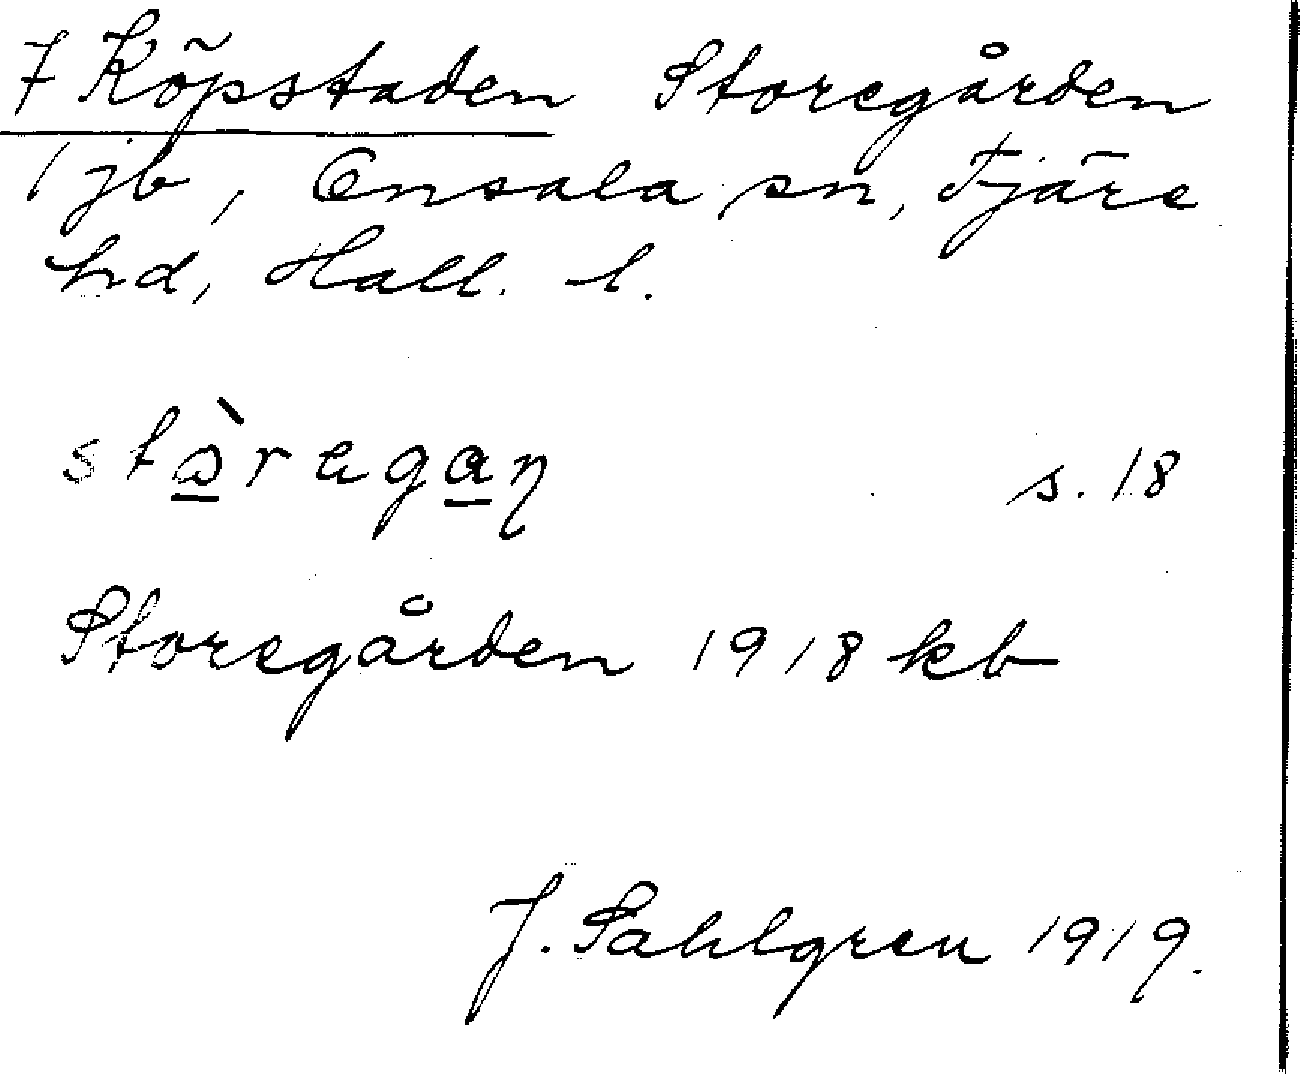 7 Köpstaden Storegården
1 jb, Onsala sn, Fjäre
hd, Hall. l.
s. 18
Storegården 1918 kb
J. Sahlgren 1919.